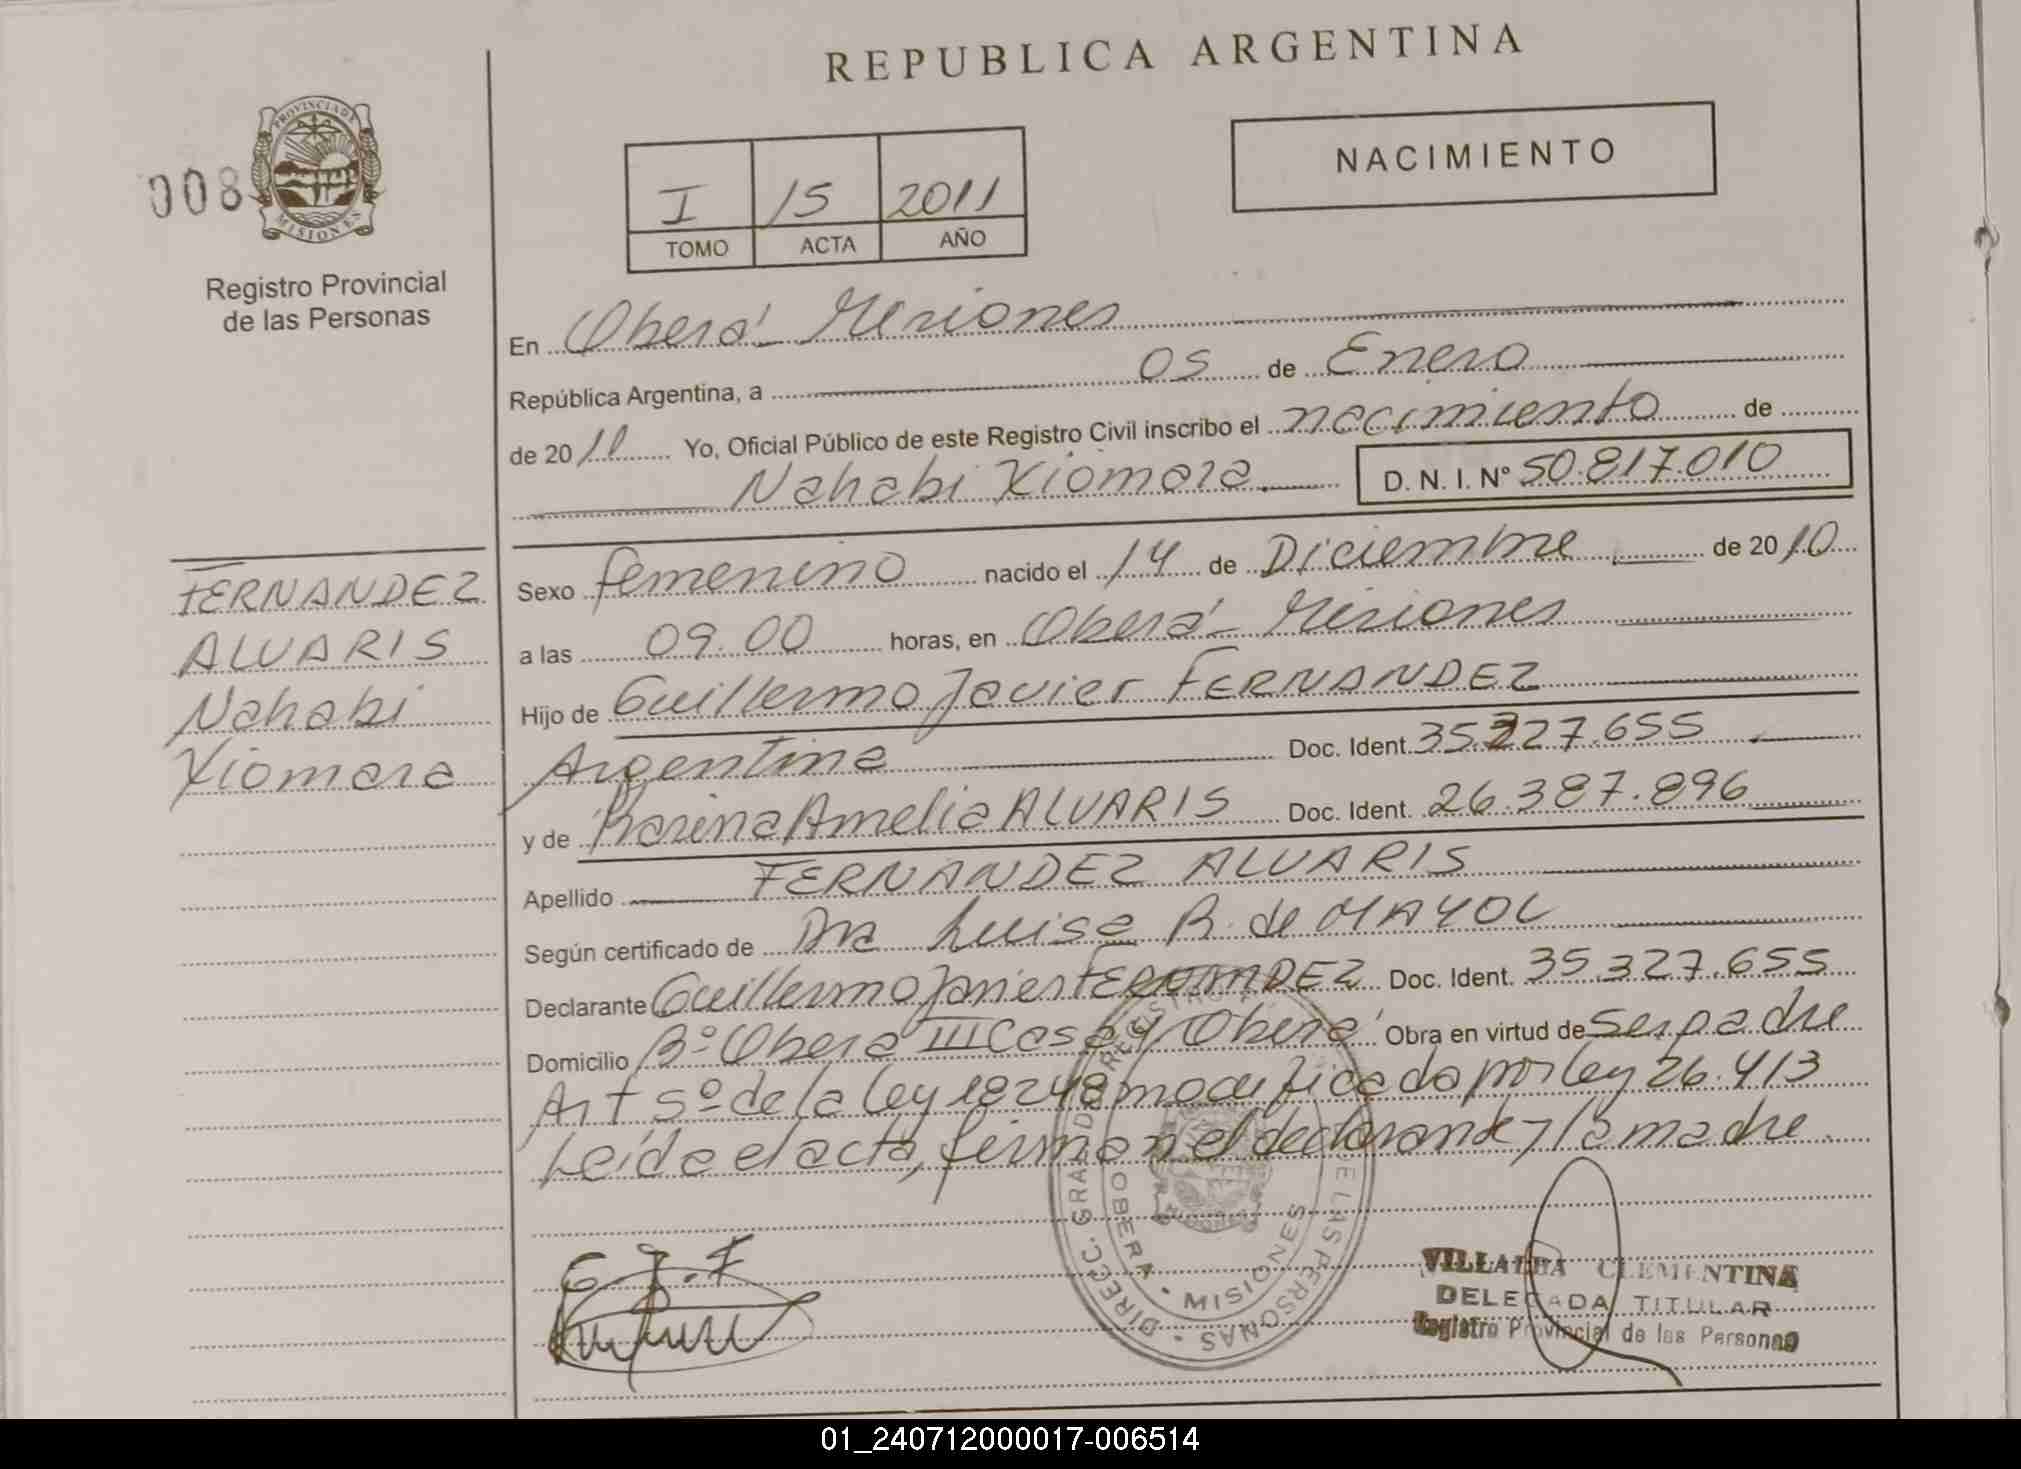 REPUBLICA ARGENTINA
008
PROVINCIA DE
MISIONES
Registro Provincial
de las Personas
I 15 2011
TOMO ACTA AÑO
NACIMIENTO
En Oberá Misiones
República Argentina, a 05 de Enero
de 2011 Yo, Oficial Público de este Registro Civil inscribo el nacimiento de
Nahabi Xiomara D. N. I. Nº 50.817.010
FERNANDEZ
ALVARIS
Nahabi
Xiomara
Sexo femenino nacido el 14 de Diciembre de 2010
a las 09.00 horas, en Oberá Misiones
Hijo de Guillermo Javier FERNANDEZ
Argentina Doc. Ident. 35.327.655
y de Karina Amelia ALVARIS Doc. Ident. 26.387.896
Apellido FERNANDEZ ALVARIS
Según certificado de Dra Luisa R. de MAYOL
Declarante Guillermo Javier FERNANDEZ Doc. Ident. 35.327.655
Domicilio Bº Oberá III Casa Oberá Obra en virtud de ser padre
Art 5º de la ley 18248 modificada por ley 26.413
Leída el acta, firman el declarante y la madre.
G.J.F
DIRECC. GRAL DE REGISTRO DE LAS PERSONAS
OBERA • MISIONES
VILLALBA CLEMENTINA
DELEGADA TITULAR
Registro Provincial de las Personas
01_240712000017-006514